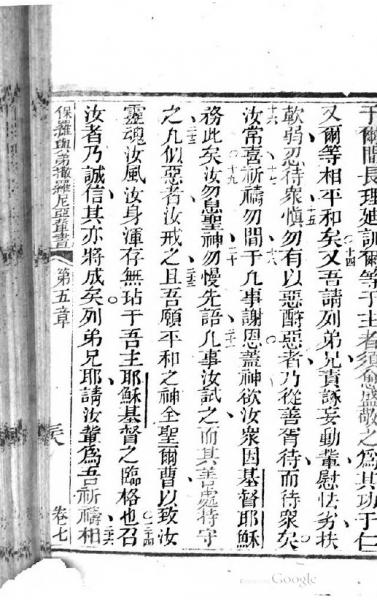 于爾間長理廸訓爾等于主者須愈盛敬之爲其功于仁
又爾等相平和矣又吾請列弟兄責諑妄動輩慰怯劣扶
軟弱忍待衆慎勿有以惡酧惡者乃從善胥待而待衆矣
汝常喜祈禱勿間于凡事謝恩蓋神欲汝衆因基督耶穌
務此矣汝勿息聖神勿慢先語凡事汝試之而其善處持守
之凡似惡者汝戒之且吾願平和之神全聖爾曹以致汝
靈魂汝風汝身渾存無玷于吾主耶穌基督之臨格也召
汝者乃誠信其亦將成矣列弟兄耶請汝輩爲吾祈禱相
保羅與弟撒羅尼亞輩書 第五章 卷七
Google